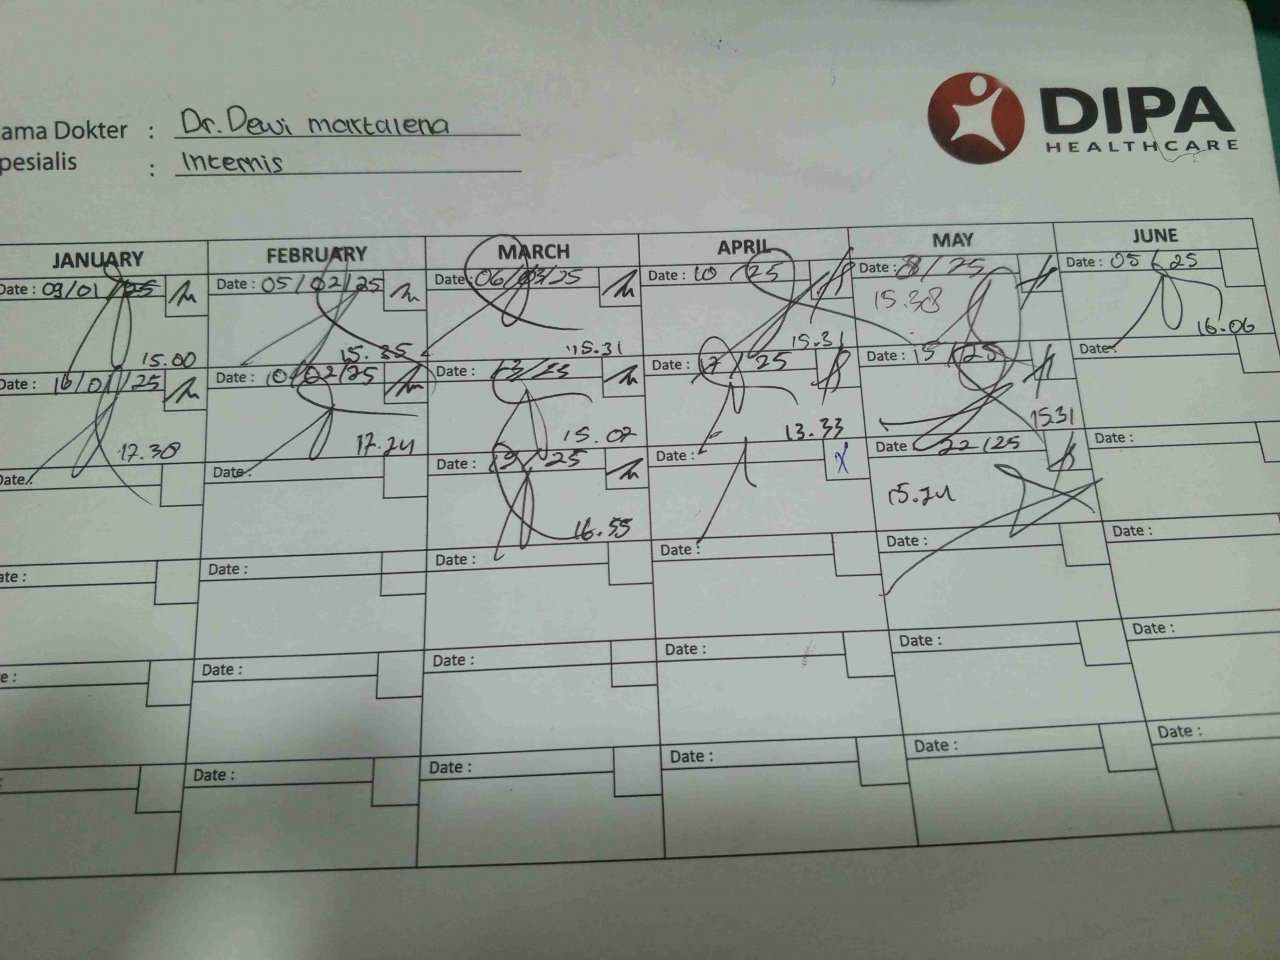 ama Dokter : Dr. Dewi martalena
pesialis : Internis
DIPA
HEALTHCARE
JANUARY FEBRUARY MARCH APRIL MAY JUNE
Date: 09/01/25 Date : 05/02/25 Date : 06/03/25 Date : 10 /25 Date : 8/25 Date : 05/25
15.38
15.00 15.35 15.31 15.31 16.06
Date : 16/01/25 Date : 10/02/25 Date : 13/25 Date : 17/25 Date : 15/25 Date:
17.30 17.24 15.02 13.33 15.31
Date: Date: Date : 19/25 Date : Date : 22/25 Date :
16.55 15.24
ate : Date : Date : Date : Date : Date :
e : Date : Date : Date : Date : Date :
: Date : Date : Date : Date : Date :